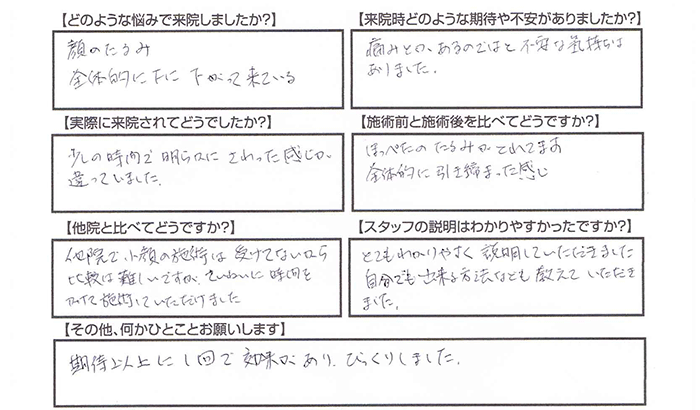 【どのような悩みで来院しましたか?】
顔のたるみ
全体的に下に下がって来ている
【来院時どのような期待や不安がありましたか?】
痛みとか、あるのではと不安な気持ちは
ありました。
【実際に来院されてどうでしたか?】
少しの時間で明らかにさわった感じが
違っていました。
【施術前と施術後を比べてどうですか?】
ほっぺたのたるみがとれてます
全体的に引き締まった感じ
【他院と比べてどうですか?】
他院で小顔の施術は受けてないから
比較は難しいですが、ていねいに時間を
かけて施術していただけました
【スタッフの説明はわかりやすかったですか?】
とてもわかりやすく説明していただきました
自分でも出来る方法なども教えていただき
ました。
【その他、何かひとことお願いします】
期待以上に1回で効果があり、びっくりしました。